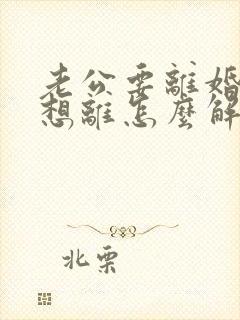 老公要離婚
想離怎麼解
北栗